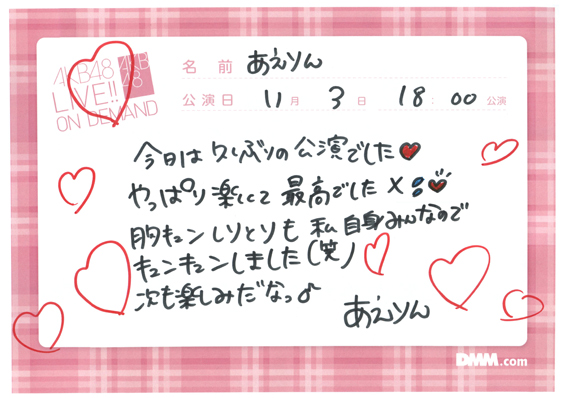 AKB48
LIVE!!
ON DEMAND
AKB
48
名前 あえりん
公演日 11月 3日 18:00公演
今日は久しぶりの公演でした♥
やっぱり楽しくて 最高でした×
胸キュンしりとりも 私自身みんなので
キュンキュンしました(笑)
次も楽しみだなっ♪
あえりん
DMM.com